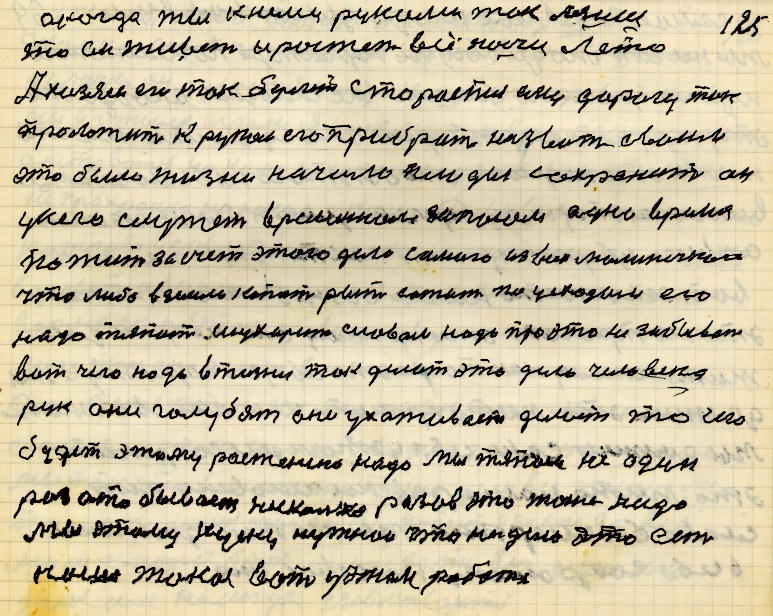 а когда мы к нему руками так лезши 125
это он живёт и растет всё почи лето
А хозяен его так будит стораетия ему дорогу так
проложит к рукам его прибрать назвать своим
это было жизни начало плоды сохранить он
у кого сможет временном запасом одно время
пожить за счет этого дела самого из всех маленечкого
что либо в землю копат рыть сажат по уходым его
надо тяпат мотыжить словам надо про это не забыват
вот чего надо в жизни так делат это дело человека
рук они голубят они ухаживает делают то чего
будит этому растению надо мы тяпаем не один
раз это бывает несколько разов это тоже надо
мы этому нужное что надело это есть
наша такая вот ужам работа